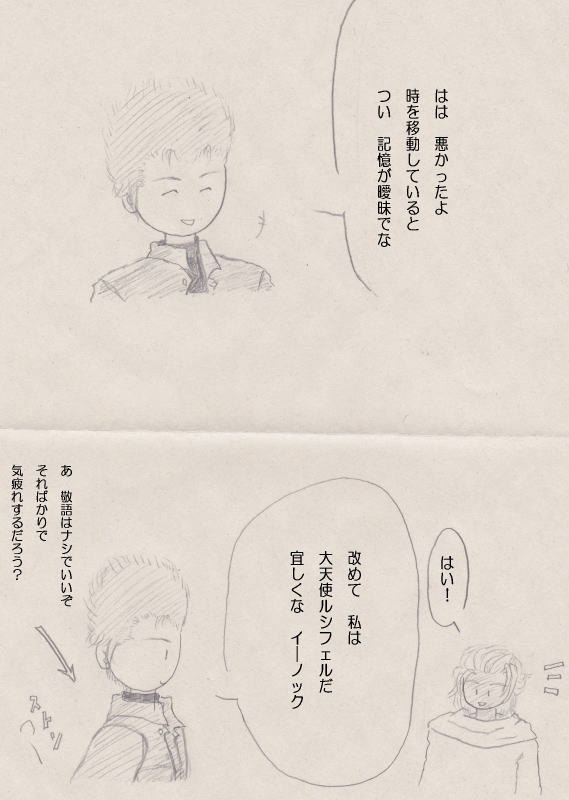 はは　悪かったよ
時を移動していると
つい　記憶が曖昧でな
はい！
改めて　私は
大天使ルシフェルだ
宜しくな　イーノック
あ　敬語はナシでいいぞ
そればかりで
気疲れするだろう？
ストン